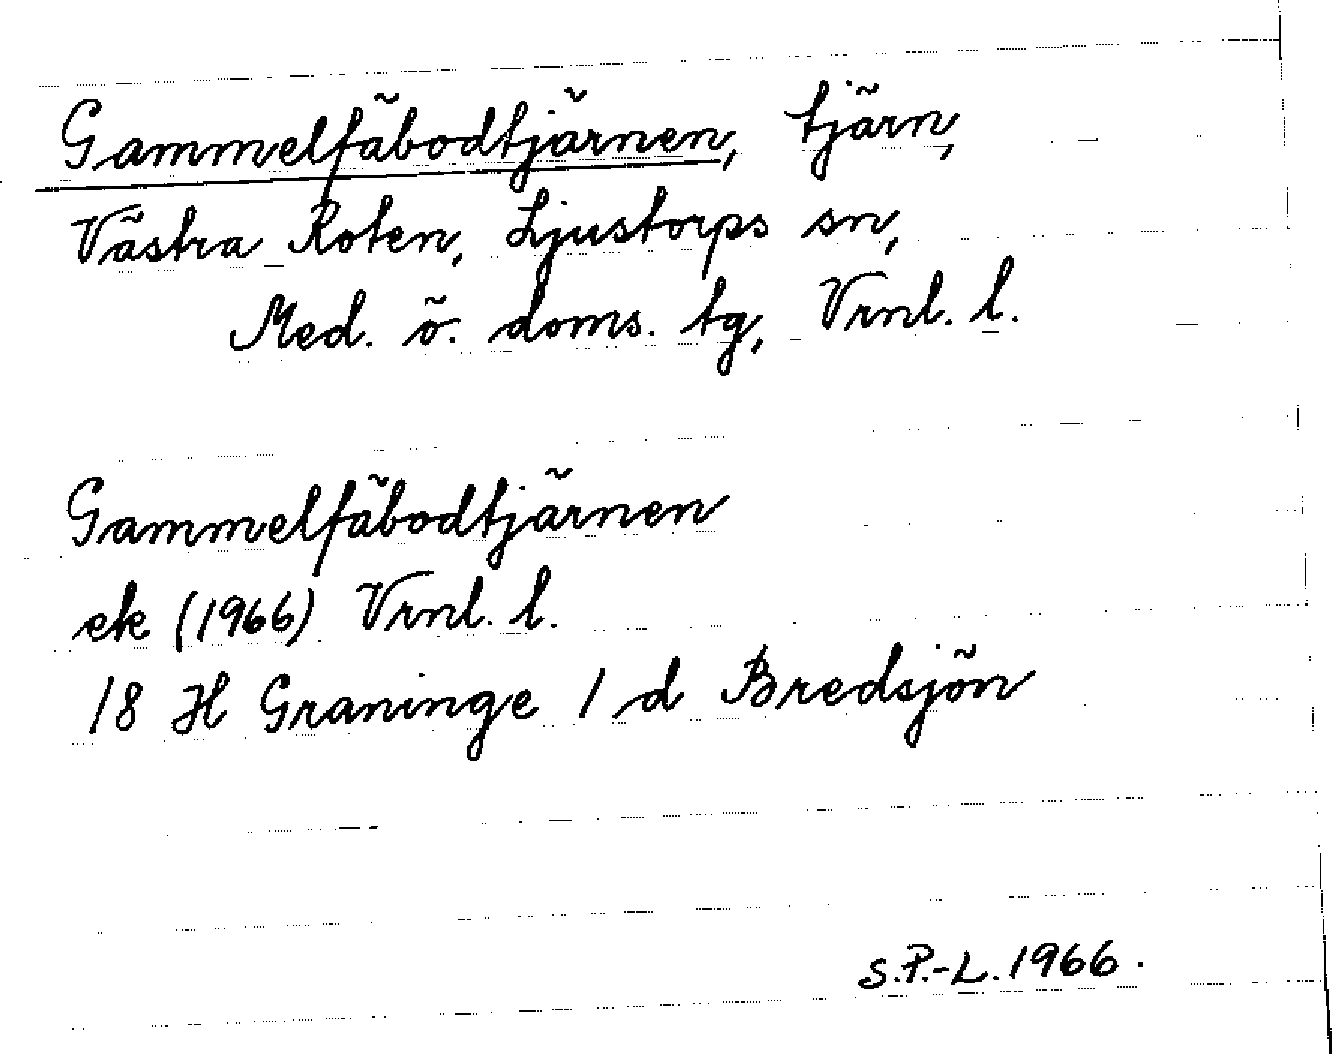 Gammelfäbodtjärnen, tjärn,
Västra Roten, Ljustorps sn,
Med. ö. doms. tg, Vrnl. l.
Gammelfäbodtjärnen
ek (1966) Vrnl. l.
18 H Graninge 1 d Bredsjön
S.P.-L. 1966.